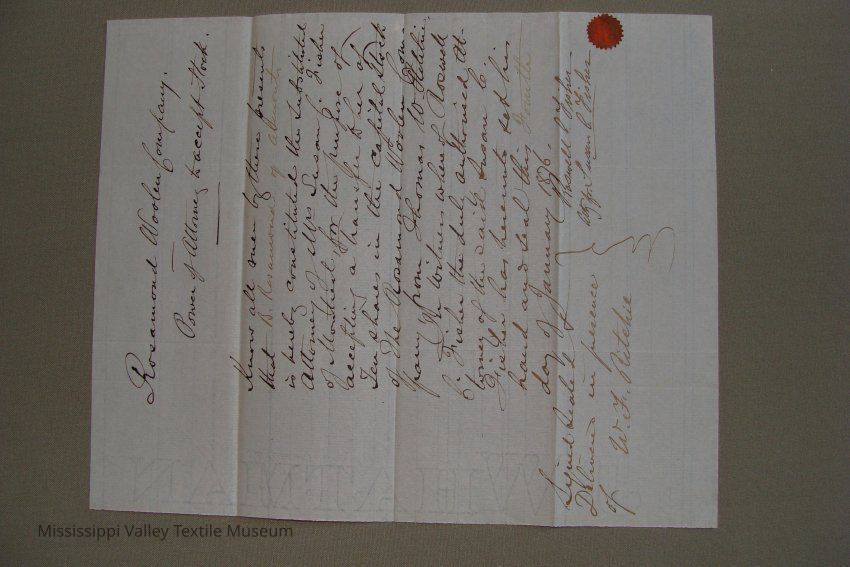 Rosamond Woolen Company.
Power of Attorney to accept Stock.
Know all men by these presents
that B. Rosamond of Almonte
is hereby constituted the substituted
Attorney of Mrs Susan C. Fisher
of Montreal for the purpose of
accepting a transfer to her of
Ten shares in the Capital Stock
of The Rosamond Woolen Com-
pany from Thomas W. Ritchie.
In witness whereof Roswell
C. Fisher the duly authorised At-
torney of the said Susan C.
Fisher has hereunto set his
hand and seal this fourth
day of January 1876.
Signed Sealed &
Delivered in presence
of
W. F. Ritchie
Roswell C Fisher
Atty for Susan C Fisher
WHATMAN
Mississippi Valley Textile Museum